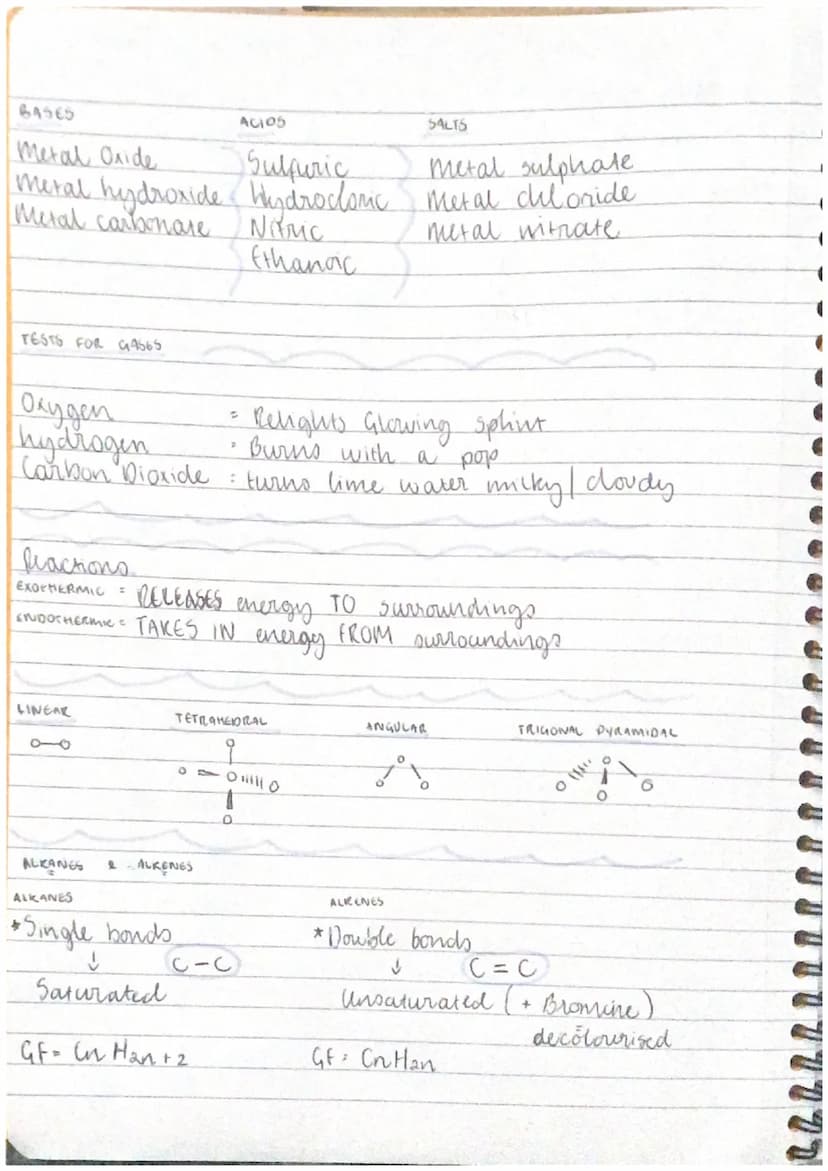 BASES ACIDS SALTS
Metal Oxide Sulfuric Metal sulphate
Metal hydroxide Hydrocloric Metal chloride
Metal carbonate Nitric Metal nitrate
Ethanoic
TESTS FOR GASES
Oxygen = Relights Glowing Splint
hydrogen = Burns with a pop
Carbon Dioxide = turns lime water milky / cloudy
Reactions
EXOTHERMIC = RELEASES energy TO surroundings
ENDOTHERMIC = TAKES IN energy FROM surroundings
LINEAR TETRAHEDRAL ANGULAR TRIGONAL PYRAMIDAL
ALKANES & ALKENES
ALKANES ALKENES
*Single bonds *Double bonds
↓ C - C ↓ C = C
Saturated Unsaturated (+ Bromine)
decolourised
GF = CnH2n+2 GF = CnH2n